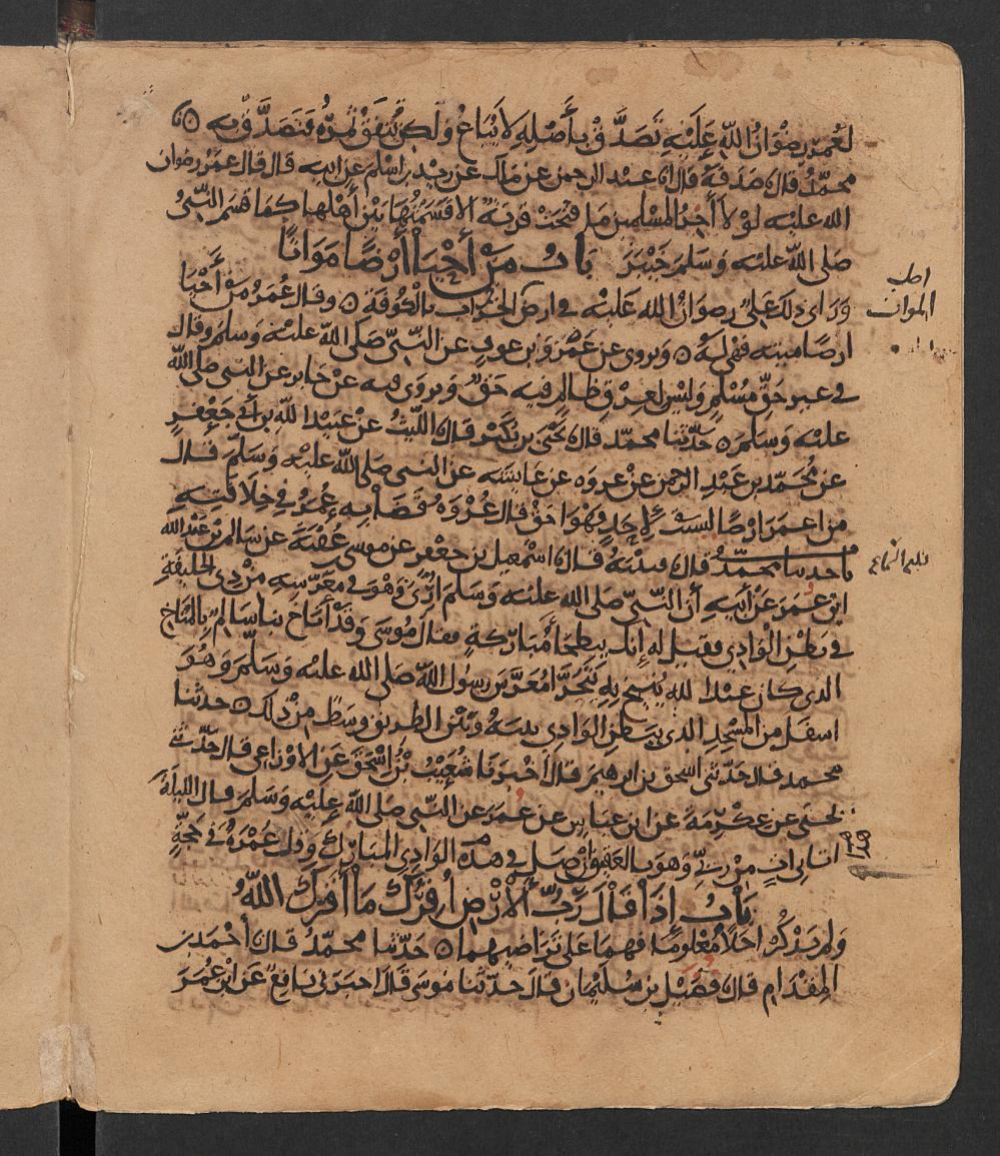 لعُمَر رِضْوَانُ اللّه عَلَيْهِ تَصَدَّقْ بأَصْلِهِ لاَ يُبَاعُ وَلَكِنْ يُنفَقُ ثَمَرُهُ فَتَصَدَّقَ بِهِ ه
محمّدٌ قال صَدَقَةُ قال انا عبد الرحمن عن مالك عن زيد بن اسلم عن ابيه قال قال عمَرُ رضوان
الله عليه لوْلاَ آخِرُ المسْلمين ما فتحت قرية الا قسَمْتُهَا بَيْن أهْلهَا كمَا قسَم النَّبيُّ
صَلى اللّه عليه وَسَلم خَيْبَرَ باب مَنْ أَحْيَا أَرْضًا مَوَاتًا
وَرَاى ذلك عَليٌّ رضوانُ الله عَليْه في ارض الخراب بالكُوفَة ه وقال عُمَرُ مَنْ أَحْيَا
ارضًا ميته فهْي لهُ ه وَيروى عن عمَر وَبن عوف عن النّبيّ صَلى اللّه عليْه وَسلمَ وقال
في غير حَقِّ مُسْلِمٍ وَليْسَ لعِرْقٍ ظالمٍ فيه حَقٌّ وَيروَى فيه عنْ جابر عن النبى صَلى اللّه
عليْه وَسَلمَ ه حدّثنا محمّد قال يَحْيَى بن بُكَيْر قال اللَّيْثُ عنْ عبَيْد اللّه بن أبي جَعْفَرٍ
عن مُحَمّد بن عَبْدِ الرحمن عنْ عروه عن عايشه عن النبى صَلى اللّه عليْه وَسَلَّمَ قال
من اعمَرَ ارضًا ليست لأحَدٍ فهُوَ احَقّ قال عُرْوَةُ قَضَا به عُمَرُ في خِلاَفَتِهِ
باب حدثنا محمّدٌ قال قتيْبَة قال اسْمعيل بن جعْفر عن موسى بن عُقْبَة عن سَالم بْن عَبْد اللّه
ابن عمَرَ عَنْ أبيه أن النَّبيّ صَلى الله عليْه وَسَلم أُرِيَ وَهْوَ في مُعَرَّسِهِ مِنْ ذِي الحُلَيفَةِ
في بَطْنِ الْوَادِي فقيل له إنك ببطحَا مُبَارَكَة فقال مُوسَى وَقَدْ أنَاخ بنا سَالمٌ بالمُنَاخِ
الذى كان عبْدُ الله يُنيخُ بِهِ يَتَحَرَّا مُعَرَّسَ رسُول اللّه صَلى الله عليْه وَسَلَّمَ وَهُوَ
اسفَل مِن المَسْجد الذى ببَطْن الوَادِي بيْنهُ وَبَيْن الطريق وسَط مِنْ ذلك ه حدثنا
محمد قال حَدّثنى اسحق بن ابرهيم قال أَخْبَرَنَا شُعَيْبُ بْنُ اسْحَق عَن الاوْزاعى قال حَدّثني
يَحْيَى عن عكْرمَة عن ابن عبَّاسٍ عن عمَر عن النَّبى صَلى اللّه عليْه وَسَلمَ قال اللَّيلَةَ
اتانى اتٍ مِنْ ربِّي وَهوَ بالعَقِيقِ أنْ صَلِّ في هذا الوَادِي المُبَارَك وَقل عُمْرَةٌ في حَجَّةٍ
هذا
بَابُ إِذَا قَالَ رَبُّ الْأَرْضِ أُقِرُّكَ مَا أَقَرَّكَ اللَّهُ
وَلم يَذْكُرْ اجَلاً مَعْلومًا فهمَا على تَرَاضِيهِمَا ه حَدّثنا محمّدٌ قال أَحْمَدُ بن
المِقْدَام قال فُضَيْل بن سُلَيْمان قال حدّثنا مُوسَى قال اخبَرَني نافعٌ عَن ابْن عُمَرَ
الموات
بلغ السماع